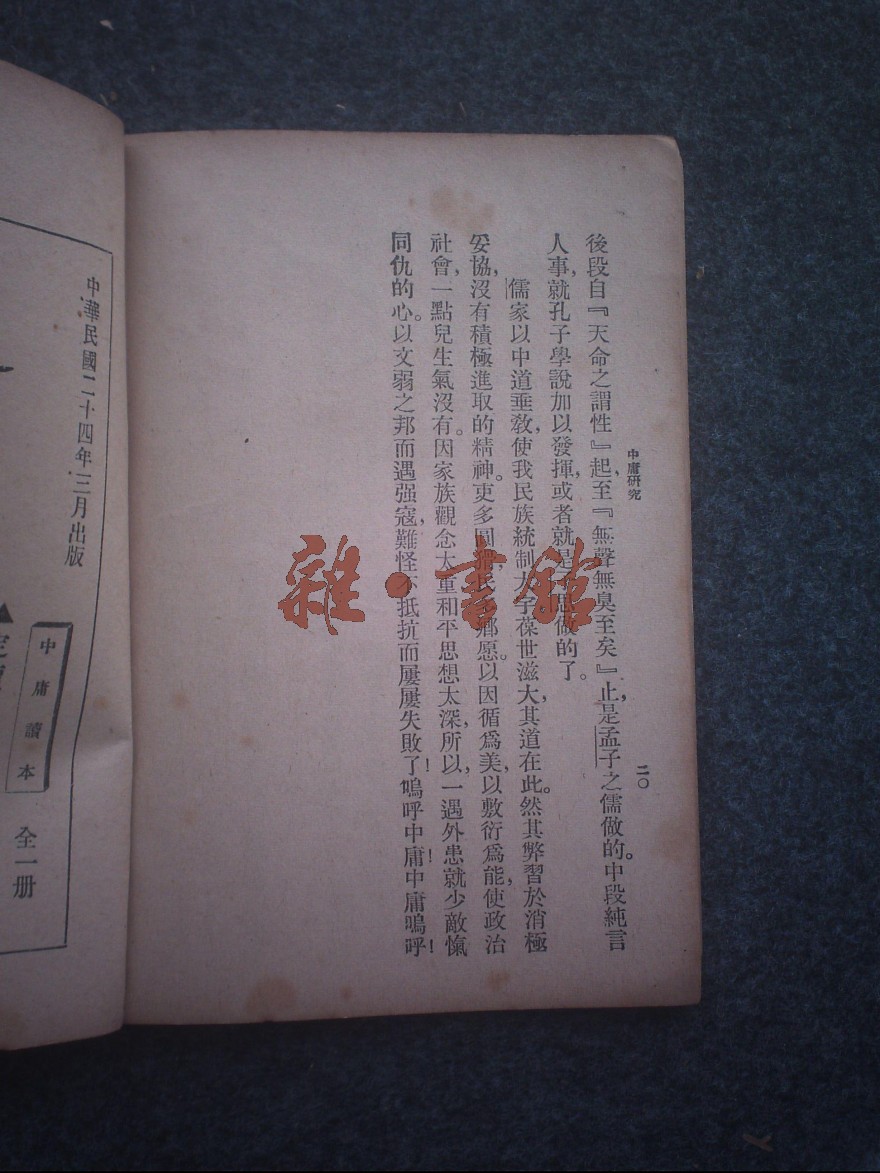 中庸研究
二〇
後段自『天命之謂性』起,至『無聲無臭至矣』止,是孟子之儒做的。中段純言
人事,就孔子學說加以發揮,或者就是子思做的了。
儒家以中道垂敎,使我民族統制大宇葆世滋大,其道在此。然其弊習於消極
妥協,沒有積極進取的精神。更多圓猾民鄕愿。以因循爲美,以敷衍爲能,使政治
社會,一點兒生氣沒有。因家族觀念太重和平思想太深,所以一遇外患就少敵愾
同仇的心。以文弱之邦而遇强寇,難怪不抵抗而屢屢失敗了!嗚呼中庸!中庸嗚呼!
雜·書館
中華民國二十四年三月出版
中庸讀本
全一册